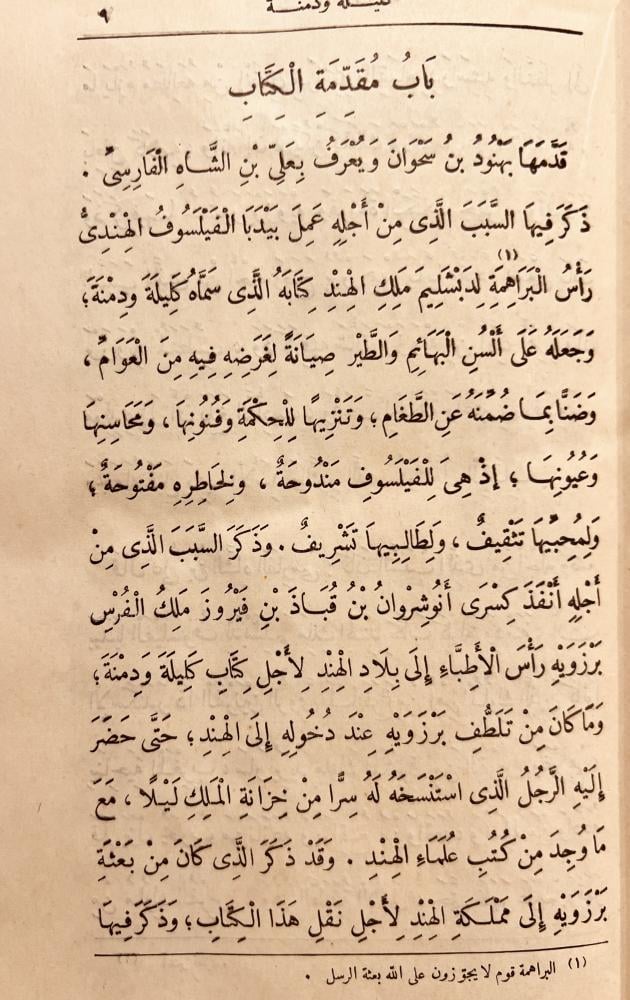 كليلة ودمنة
٩
بَابُ مُقَدِّمَةِ الْكِتَابِ
قَدَّمَهَا بَهْنُودُ بْنُ سَحْوَانَ وَيُعْرَفُ بِعَلِيِّ بْنِ الشَّاهِ الْفَارِسِىِّ .
ذَكَرَ فِيهَا السَّبَبَ الَّذِى مِنْ أَجْلِهِ عَمِلَ بَيْدَبَا الْفَيْلَسُوفُ الْهِنْدِىُّ
رَأْسُ الْبَرَاهِمَةِ (١) لِدَبْشَلِيمَ مَلِكِ الْهِنْدِ كِتَابَهُ الَّذِى سَمَّاهُ كَلِيلَةَ وَدِمْنَةَ؛
وَجَعَلَهُ عَلَى أَلْسُنِ الْبَهَائِمِ وَالطَّيْرِ صِيَانَةً لِغَرَضِهِ فِيهِ مِنَ الْعَوَامِّ ،
وَضَنًّا بِمَا ضُمِّنَهُ عَنِ الطَّغَامِ؛ وَتَنْزِيهًا لِلْحِكْمَةِ وَفُنُونِهَا ، وَمَحَاسِنِهَا
وَعُيُونِهَا ؛ إذْ هِىَ لِلْفَيْلَسُوفِ مَنْدُوحَةٌ ، وَلِخَاطِرِهِ مَفْتُوحَةٌ ؛
وَلِمُحِبِّيهَا تَثْقِيفٌ ، وَلِطَالِبِيهَا تَشْرِيفٌ . وَذَكَرَ السَّبَبَ الَّذِى مِنْ
أَجْلِهِ أَنْفَذَ كِسْرَى أَنُوشِرْوَانُ بْنُ قُبَاذَ بْنِ فَيْرُوزَ مَلِكُ الْفُرْسِ
بَرْزَوَيْهِ رَأْسَ الْأَطِبَّاءِ إِلَى بِلَادِ الْهِنْدِ لِأَجْلِ كِتَابِ كَلِيلَةَ وَدِمْنَةَ؛
وَمَا كَانَ مِنْ تَلَطُّفِ بَرْزَوَيْهِ عِنْدَ دُخُولِهِ إِلَى الْهِنْدِ ؛ حَتَّى حَضَرَ
إِلَيْهِ الرَّجُلُ الَّذِى اسْتَنْسَخَهُ لَهُ سِرًّا مِنْ خِزَانَةِ الْمَلِكِ لَيْلًا ، مَعَ
مَا وُجِدَ مِنْ كُتُبِ عُلَمَاءِ الْهِنْدِ . وَقَدْ ذَكَرَ الَّذِى كَانَ مِنْ بَعْثَةِ
بَرْزَوَيْهِ إِلَى مَمْلَكَةِ الْهِنْدِ لِأَجْلِ نَقْلِ هَذَا الْكِتَابِ؛ وَذَكَرَ فِيهَا
(١) البراهمة قوم لا يجوّزون على الله بعثة الرسل .